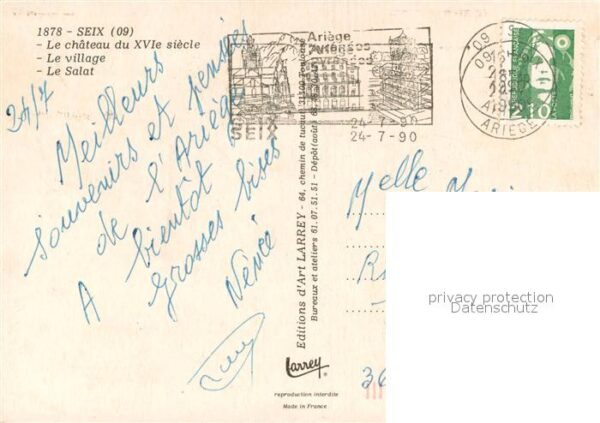 1878 - SEIX (09)
- Le château du XVIe siècle
- Le village
- Le Salat
24/7
Meilleurs
souvenirs et pensées
de l'Ariège
A bientôt
Grosses bises
Ariège
Pyrénées
SEIX
24-7-90
24-7-90
09
ARIEGE
2,10
Editions d'Art LARREY - 64, chemin de tucaut 31100 Toulouse
Bureaux et ateliers 61.07.51.51 - Dépôt(août)
Larrey
reproduction interdite
Made in France
Melle
privacy protection
Datenschutz